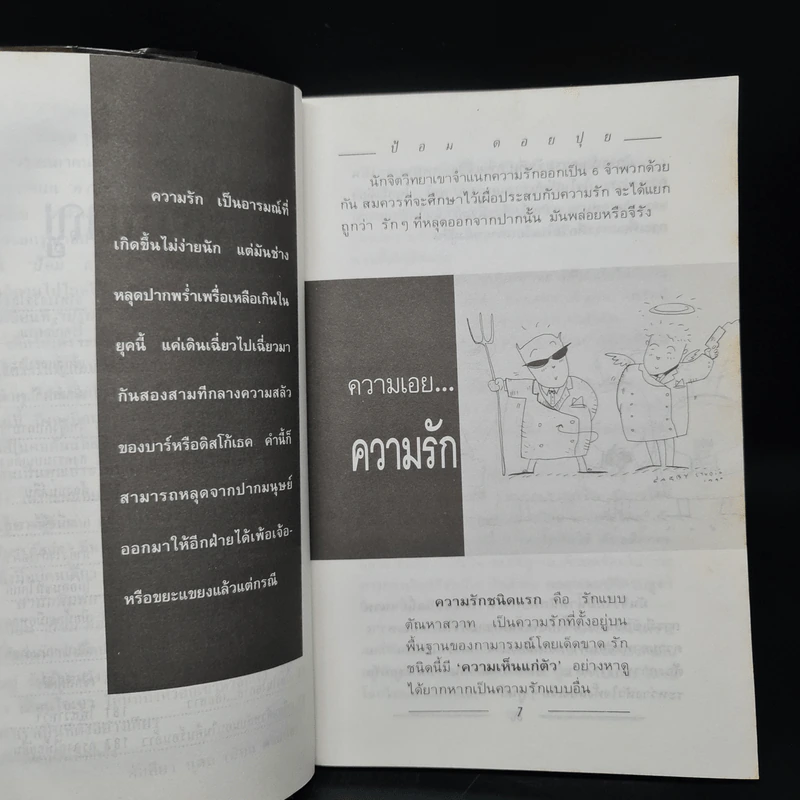 ความรัก เป็นอารมณ์ที่
เกิดขึ้นไม่ง่ายนัก แต่มันช่าง
หลุดปากพร่ำเพรื่อเหลือเกินใน
ยุคนี้ แค่เดินเฉี่ยวไปเฉี่ยวมา
กันสองสามทีกลางความสลัว
ของบาร์หรือดิสโก้เธค คำนี้ก็
สามารถหลุดจากปากมนุษย์
ออกมาให้อีกฝ่ายได้เพ้อเจ้อ-
หรือขยะแขยงแล้วแต่กรณี
ป้อม ดอยปุย
นักจิตวิทยาเขาจำแนกความรักออกเป็น 6 จำพวกด้วย
กัน สมควรที่จะศึกษาไว้เผื่อประสบกับความรัก จะได้แยก
ถูกว่า รักๆ ที่หลุดออกจากปากนั้น มันพล่อยหรือจีรัง
ความเอย...
ความรัก
ความรักชนิดแรก คือ รักแบบ
ตัณหาสวาท เป็นความรักที่ตั้งอยู่บน
พื้นฐานของกามารมณ์โดยเด็ดขาด รัก
ชนิดนี้มี 'ความเห็นแก่ตัว' อย่างหาดู
ได้ยากหากเป็นความรักแบบอื่น
7